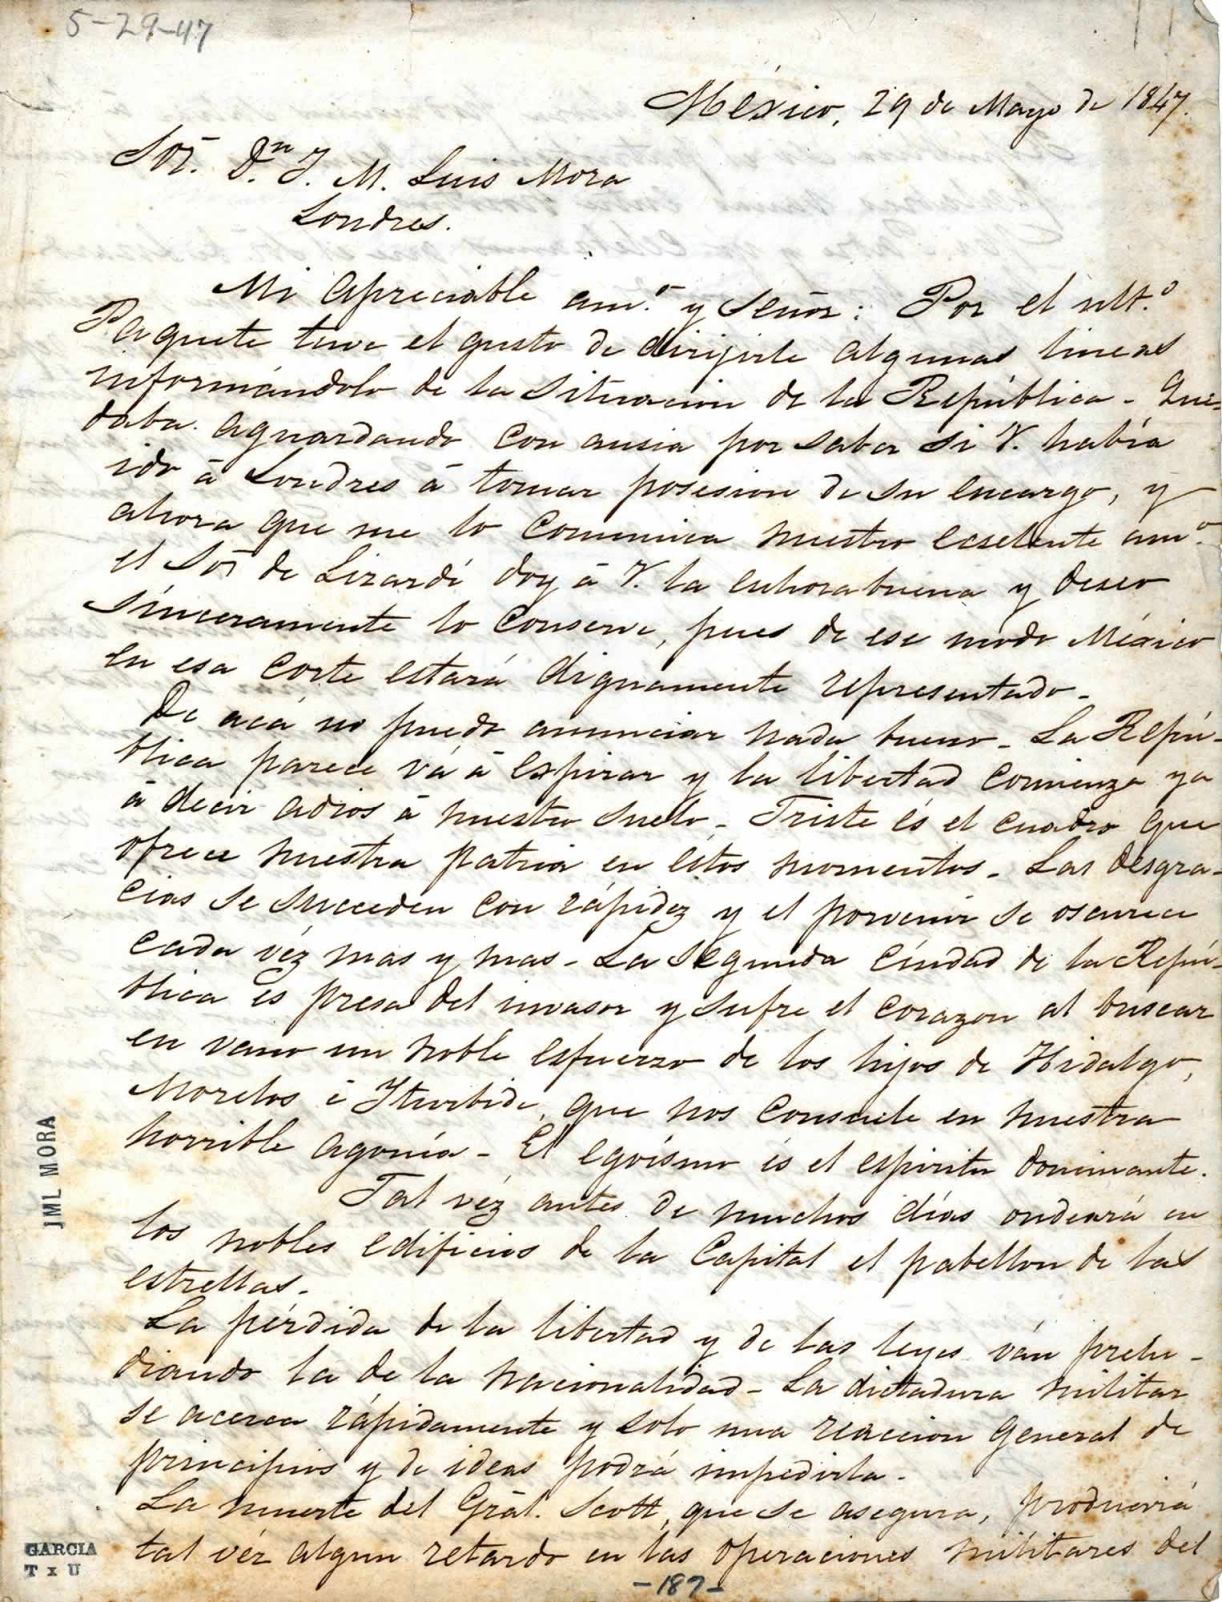 5-29-47
México, 29 de Mayo de 1847.
Sōr. Dn. J. M. Luis Mora
Londres.
Mi apreciable amo. y Señor: Por el ulto.
Paquete tuve el gusto de dirijirle algunas lineas
informándolo de la situacion de la República - Que-
daba aguardando con ansia por saber si V. había
ido á Londres á tomar posesion de su encargo, y
ahora que me lo comunica nuestro escelente amo.
el Sōr de Lizardi doy á V. la enhorabuena y deseo
sínceramente lo conserve, pues de ese modo México
en esa corte estará dignamente representado -
De acá no puedo anunciar nada bueno - La Repú-
blica parece vá á espirar y la libertad comienza ya
á decir adios á nuestro suelo - Triste és el cuadro que
ofrece nuestra patria en éstos momentos - Las desgra-
cias se succeden con rápidez y el porvenir se oscurece
cada véz mas y mas - La segunda ciudad de la Repú-
blica es presa del invasor y sufre el corazon al buscar
en vano un noble esfuerzo de los hijos de Hidalgo,
Morelos é Iturbide, que nos consuele en nuestra
horrible agonía - El egoismo és el espiritu dominante.
Tal véz antes de muchos días ondeará en
los nobles edificios de la Capital el pabellon de las
estrellas -
La pérdida de la libertad y de las leyes ván prelu-
diando la de la nacionalidad - La dictadura militar
se acerca rápidamente y solo una reaccion general de
principios y de ideas podrá impedirla -
La muerte del Grāl. Scott, que se asegura, produciría
tal véz algun retardo en las operaciones militares del
-187-
JML MORA
GARCIA
T x U